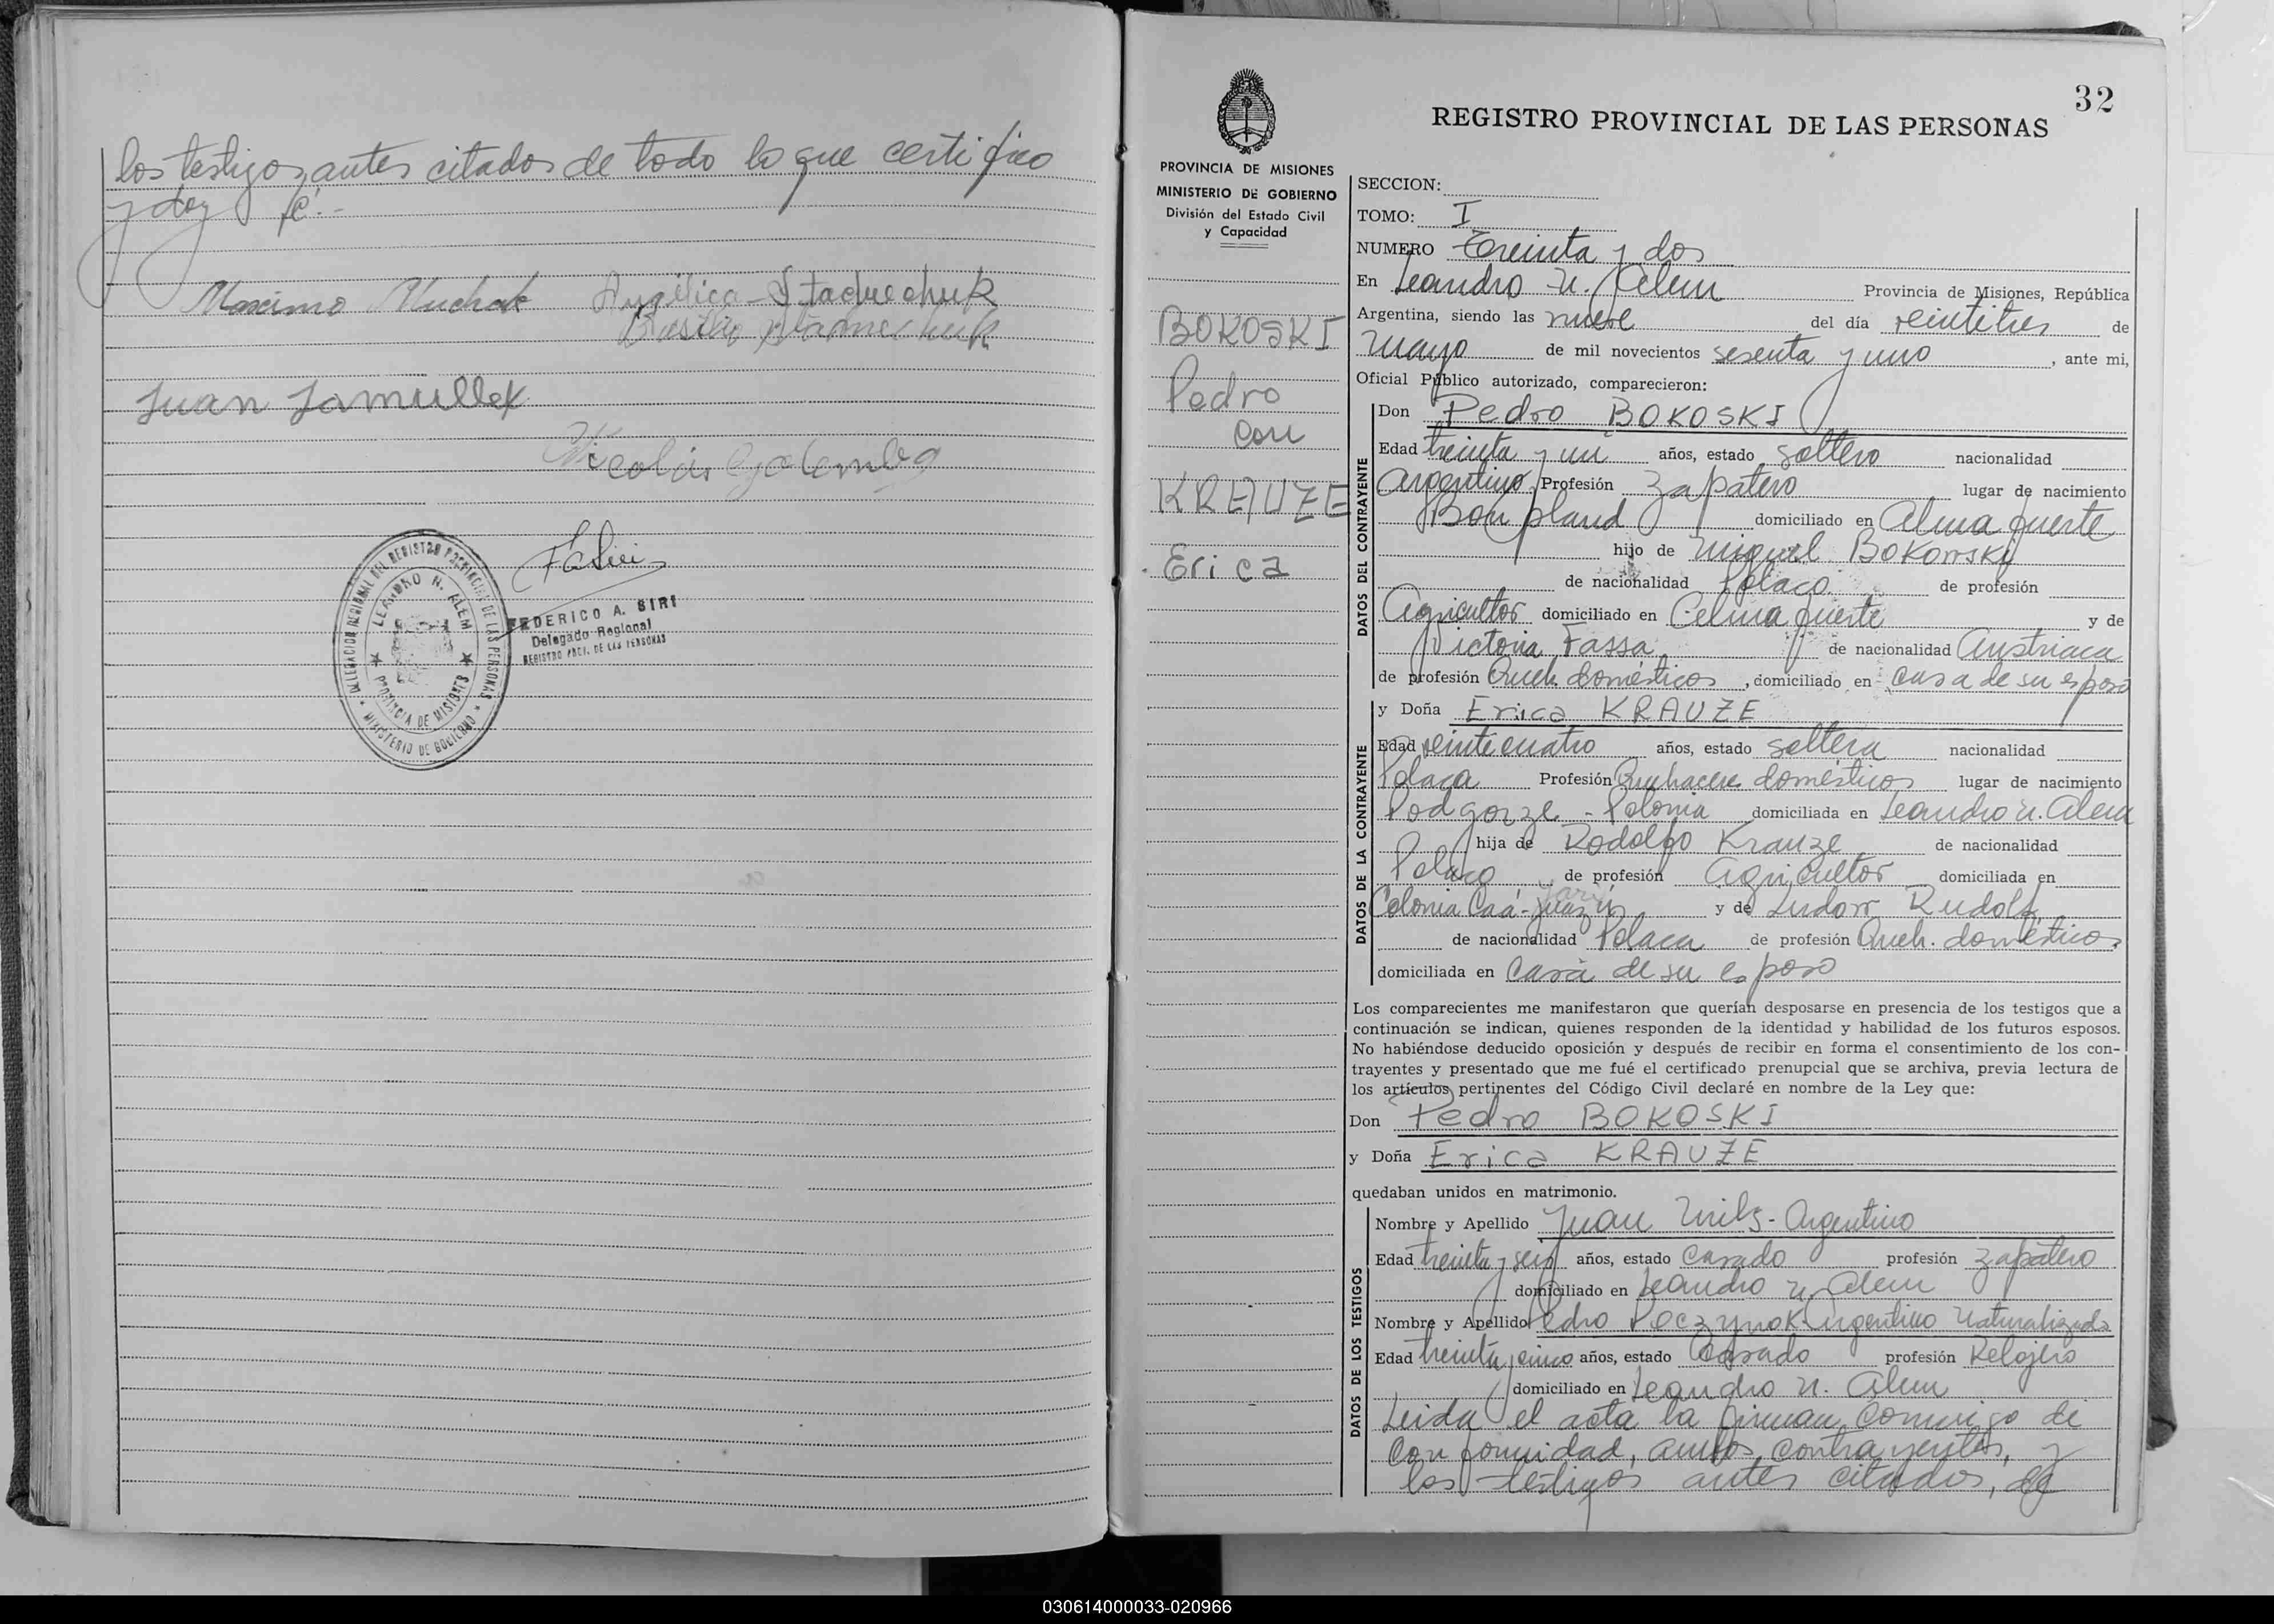 los testigos antes citados de todo lo que certifico
y doy fé.-
Maximo Muchak Angélica Staduechuk
Basilio
Juan
Nicolás
DELEGACION REGIONAL DEL REGISTRO PROVINCIAL DE LAS PERSONAS
LEANDRO N. ALEM
PROVINCIA DE MISIONES
MINISTERIO DE GOBIERNO
FEDERICO A. SIRI
Delegado Regional
REGISTRO PROV. DE LAS PERSONAS
32
REGISTRO PROVINCIAL DE LAS PERSONAS
PROVINCIA DE MISIONES
MINISTERIO DE GOBIERNO
División del Estado Civil
y Capacidad
BOKOSKI
Pedro
con
KRAUZE
Erica
SECCION:
TOMO: I
NUMERO Treinta y dos
En Leandro N. Alem Provincia de Misiones, República
Argentina, siendo las nueve del día veintitres de
mayo de mil novecientos sesenta y uno, ante mi,
Oficial Público autorizado, comparecieron:
DATOS DEL CONTRAYENTE
Don Pedro BOKOSKI
Edad treinta y un años, estado soltero nacionalidad
argentino Profesión zapatero lugar de nacimiento
Bonpland domiciliado en Alma fuerte
hijo de Miguel BOKOWSKI
de nacionalidad Polaco de profesión
Agricultor domiciliado en Alma fuerte y de
Victoria Fassa de nacionalidad Austriaca
de profesión Queh. domésticos, domiciliado en casa de su esposo
DATOS DE LA CONTRAYENTE
y Doña Erica KRAUZE
Edad veinticuatro años, estado soltera nacionalidad
Polaca Profesión Quehaceres domésticos lugar de nacimiento
Podgorze - Polonia domiciliada en Leandro N. Alem
hija de Rodolfo Krauze de nacionalidad
Polaco de profesión Agricultor domiciliada en
Colonia Caá- y de Rudolf
de nacionalidad Polaca de profesión Queh. domésticos
domiciliada en Casa de su esposo
Los comparecientes me manifestaron que querían desposarse en presencia de los testigos que a
continuación se indican, quienes responden de la identidad y habilidad de los futuros esposos.
No habiéndose deducido oposición y después de recibir en forma el consentimiento de los con-
trayentes y presentado que me fué el certificado prenupcial que se archiva, previa lectura de
los artículos pertinentes del Código Civil declaré en nombre de la Ley que:
Don Pedro BOKOSKI
y Doña Erica KRAUZE
quedaban unidos en matrimonio.
DATOS DE LOS TESTIGOS
Nombre y Apellido Juan - Argentino
Edad treinta y seis años, estado casado profesión zapatero
domiciliado en Leandro N. Alem
Nombre y Apellido Pedro Argentino Naturalizado
Edad treinta y cinco años, estado Casado profesión Relojero
domiciliado en Leandro N. Alem
Leida el acta la firman conmigo de
conformidad, ambos contrayentes, y
los testigos antes citados, de
030614000033-020966